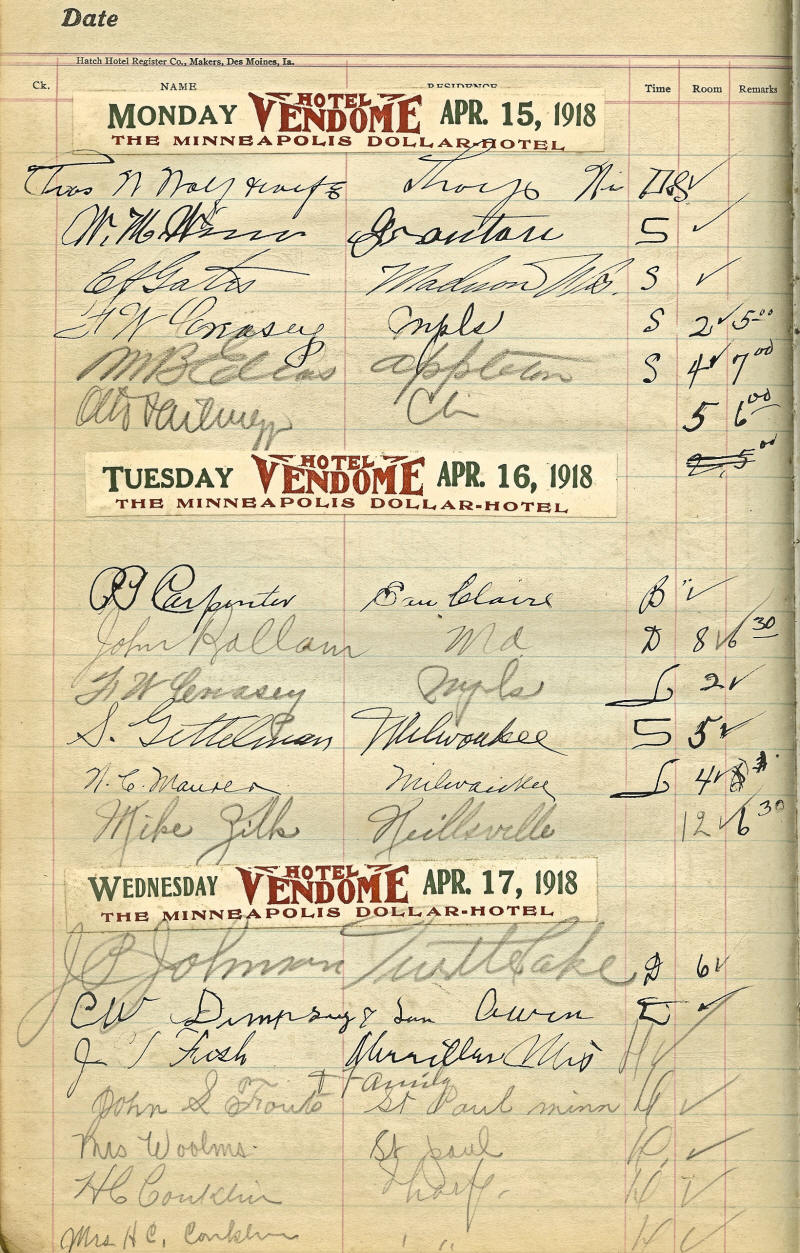 Date
Hatch Hotel Register Co., Makers, Des Moines, Ia.
Ck. NAME RESIDENCE Time Room Remarks
MONDAY HOTEL VENDOME APR. 15, 1918
THE MINNEAPOLIS DOLLAR-HOTEL
Thos N Wolf & wife Thorp Wi
W. M. Granton S ✓
Gates Madison Wis. S ✓
F W Creasey Mpls S 2 ✓ 5.00
M B Appleton S 4 ✓ 7 00
Otto Chi 5 6 00
TUESDAY HOTEL VENDOME APR. 16, 1918
THE MINNEAPOLIS DOLLAR-HOTEL
Carpenter Eau Claire B " ✓
John Mo. D 8 ✓ 6 30
F W Creasey Mpls L 2 ✓
S. Gettelman Milwaukee S 5 ✓
N. C. Maurer Milwaukee L 4 ✓
Mike Zilk Neillsville 12 ✓ 6 30
WEDNESDAY HOTEL VENDOME APR. 17, 1918
THE MINNEAPOLIS DOLLAR-HOTEL
J P Johnson Turtle Lake D 6 ✓
CW Dempsey & Son Owen ✓
J Frish Merrillan Wis ✓
+ Family
John S St Paul minn ✓
Mrs Woolms St paul ✓
H C Conklin Thorp. ✓
Mrs H C. Conklin " " ✓